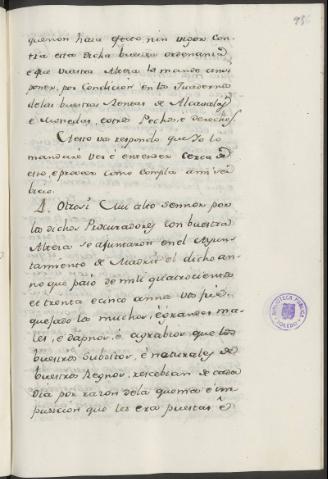 956
que non haia efecto nin vigor con-
tra esta dicha buestra ordenanza
é que vuestra Alteza la mande assi
poner, por condicion en los Quadernos
de las buestras Rentas de Alcavalas
é Monedas, é otros Pechos, é derechos
A esto vos respondo que Yo lo
mandaré ver é entender cerca de
ello, é proveer como cumpla a mi ser-
bicio.
4. Otrosi Mui alto Sennor por
los dichos Procuradores con buestra
Alteza se ajuntaron en el Ayun-
tamiento de Madrid el dicho an-
no que pasó de mill quatrocientos
et trenta é cinco annos vos fue
quejado los muchos, é grandes ma-
les, é dapnos, é agrabios que los
buestros subditos, é naturales de
buestros Regnos, rescebian de cada
dia por razon de la quema é im-
pusicion que les era puesta é
BIBLIOTECA PUBLICA
TOLEDO